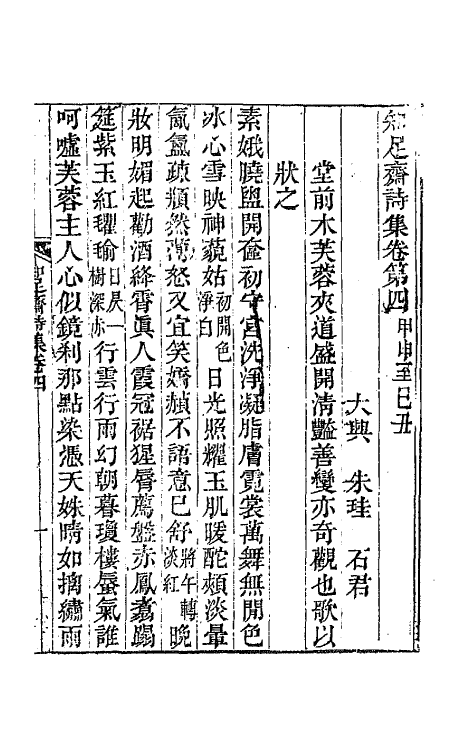 知足齋詩集卷第四 甲申至己丑
大興 朱珪 石君
堂前木芙蓉夾道盛開清豔善變亦奇觀也歌以
狀之
素娥曉盥開奩初守宮洗淨凝脂膚霓裳萬舞無閒色
冰心雪映神藐姑初開色淨白日光照耀玉肌暖酡頰淡暈
氤氳疎頹然薄怒又宜笑嬌頳不語意已舒將午轉淡紅晚
妝明媚起勸酒絳霄眞人霞冠裾猩脣薦盤赤鳳翥蹋
筵紫玉紅瓘瑜日昃一樹深赤行雲行雨幻朝暮瓊樓蜃氣誰
呵噓芙蓉主人心似鏡刹那點染憑天姝晴如摛繡雨
知足齋詩集卷四 一